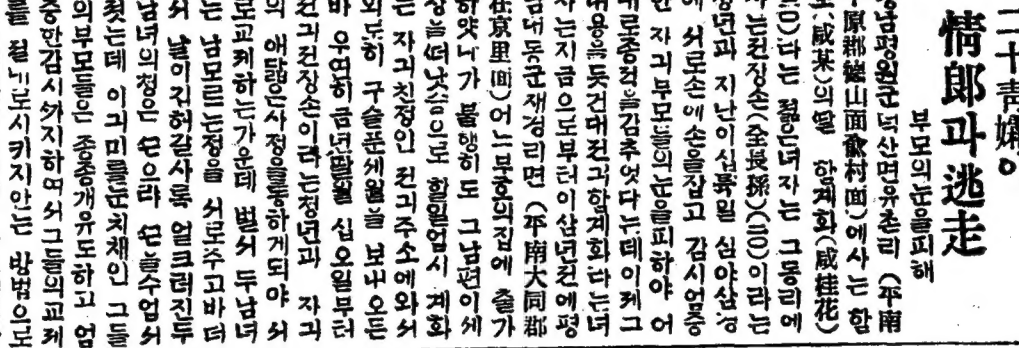 二十靑孀이
情郞과 逃走
부모의눈을피해
평남평원군덕산면유촌리 (平南
平原郡德山面兪村面)에사는 함
모(咸某)의딸 함계화(咸桂花)
(二〇)다는 젊은녀자는 그동리에
사는전장손(全長孫)(二〇)이라는
청년과 지난이십륙일 심야삼경
에 서로손에손을잡고 감시엄중
한 자긔부모들의눈을피하야 어
대로종적을감추엇다는데이제그
내용을듯건대전긔함계화다는녀
자는지금으로부터이삼년전에평
남대동군재경리면 (平南大同郡
在京里面)어느부호의집에 출가
하얏다가 불행히도 그남편이세
상을떠낫슴으로 할일업시 계화
는 자긔친정인 전긔주소에와서
외로히 구슬픈세월을 보내오든
바 우연히금년팔월 십오일부터
전긔전장손이라는청년과 자긔
의 애닯은사정을통하게되야 서
로교제하는가운데 벌서 두남녀
는 남모르는정을 서로주고바더
서 얼크러진두
남녀의정은 끈으라 끈을수업서
젓는데 이긔미를눈치채인 그들
의부모들은 종종개유도하고 엄
중한감시까지하여서그들의교제
를 절대로시키지안는 방법으로